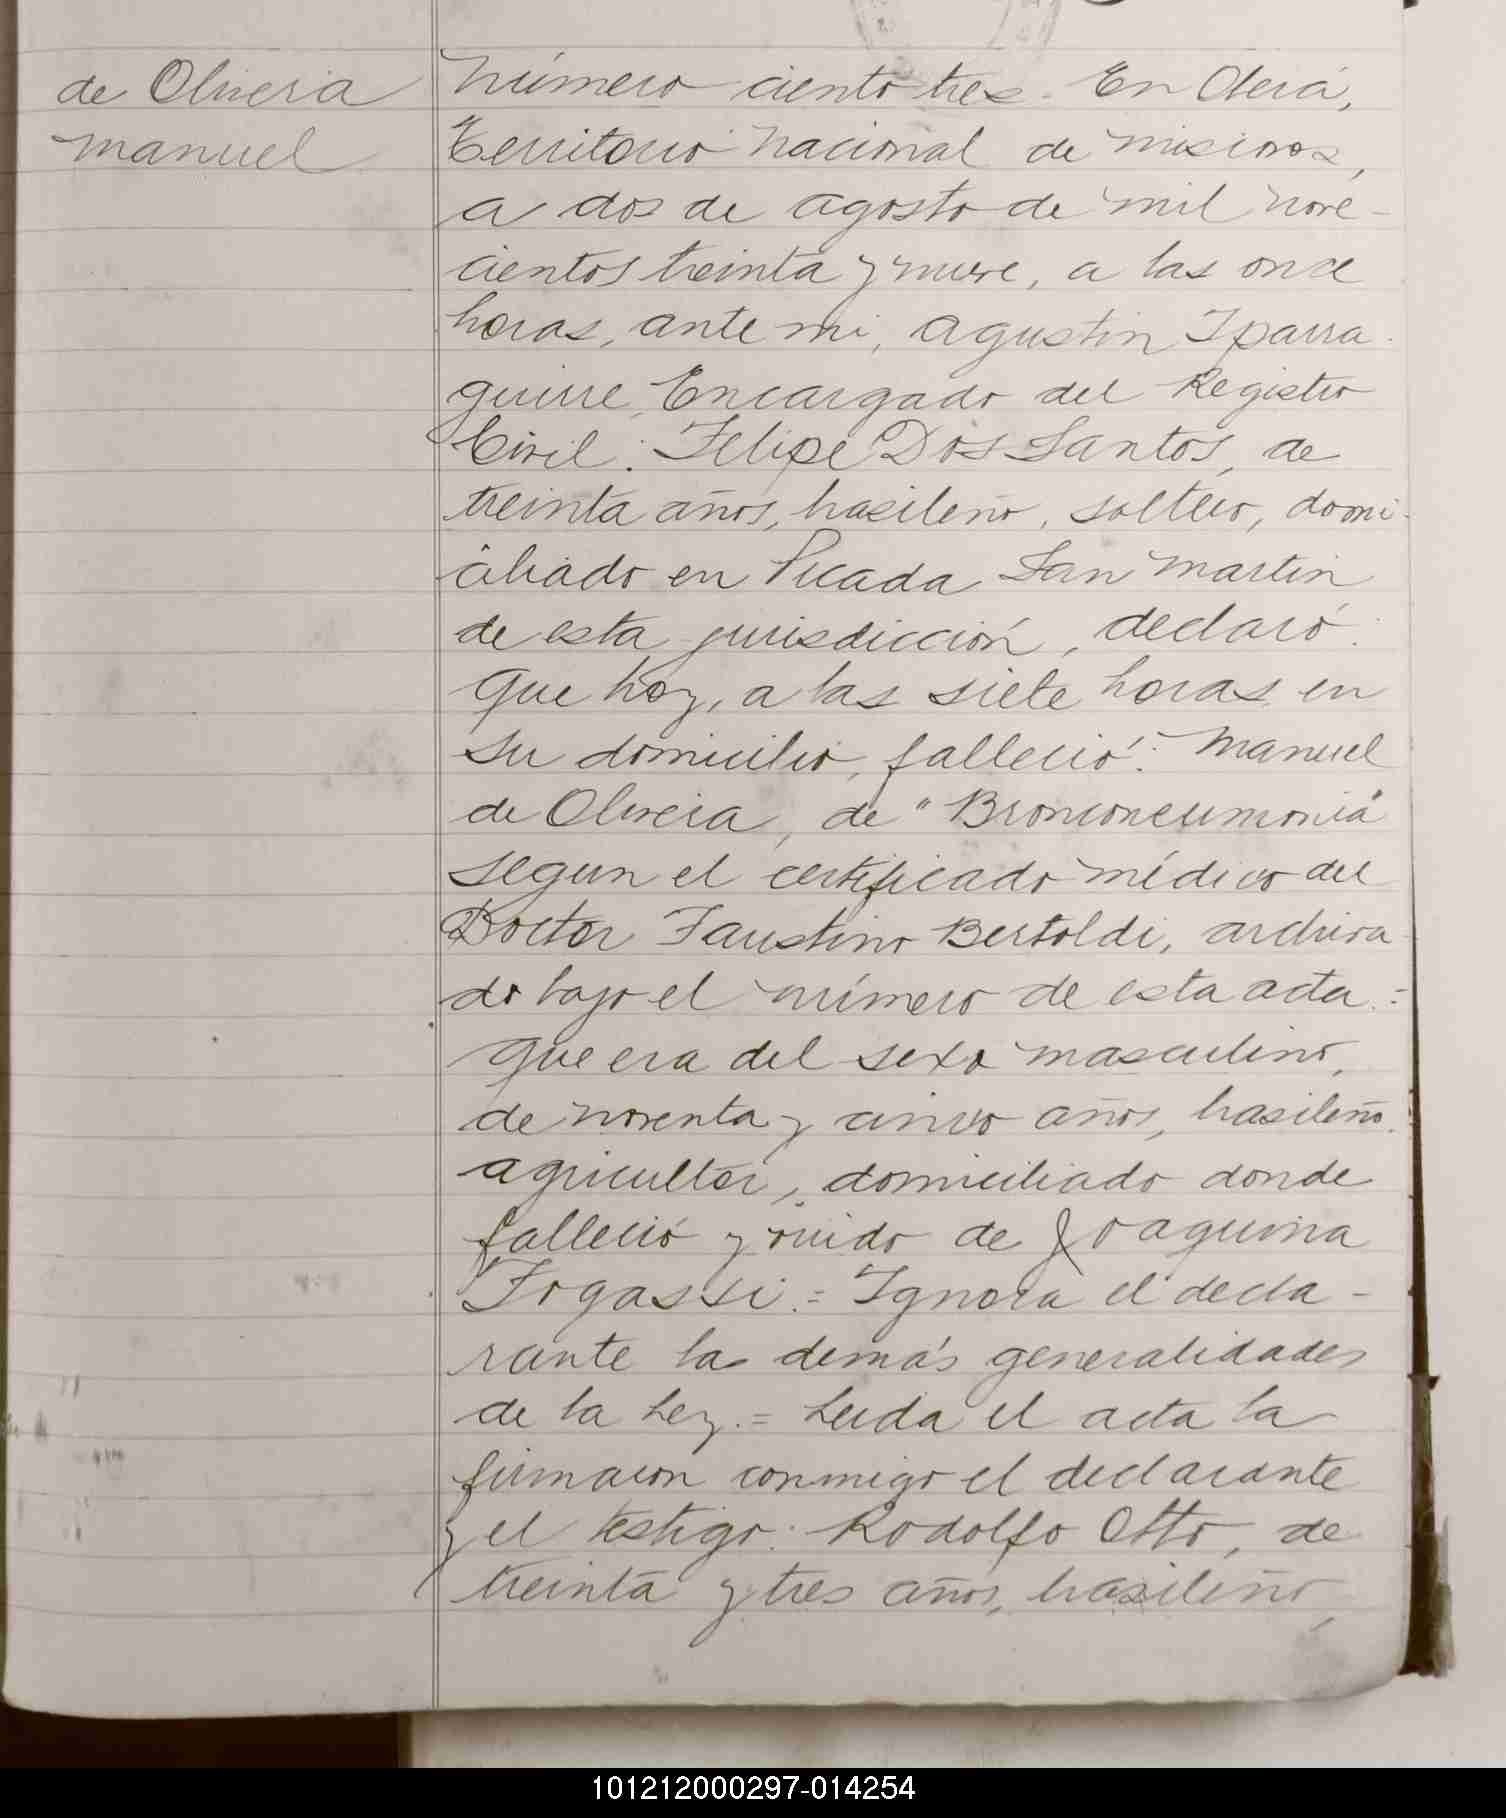 de Oliveira
Manuel
Número ciento tres. En Oberá,
Territorio Nacional de Misiones,
a dos de agosto de mil nove-
cientos treinta y nueve, a las once
horas, ante mi, Agustin Iparra-
guirre, Encargado del Registro
Civil: Felipe Dos Santos, de
treinta años, brasileño, soltero, domi-
ciliado en Picada San Martin
de esta jurisdicción, declaró:
Que hoy, a las siete horas, en
su domicilio, falleció: Manuel
de Oliveira, de "Bronconeumonia"
segun el certificado médico del
Doctor Faustino Bertoldi, archiva-
do bajo el número de esta acta.=
Que era del sexo masculino,
de noventa y cinco años, brasileño,
agricultor, domiciliado donde
falleció y viudo de Joaquina
Fogassi.= Ignora el decla-
rante las demás generalidades
de la Ley.= Leida el acta la
firmaron conmigo el declarante
y el testigo: Rodolfo Otto, de
treinta y tres años, brasileño,
101212000297-014254